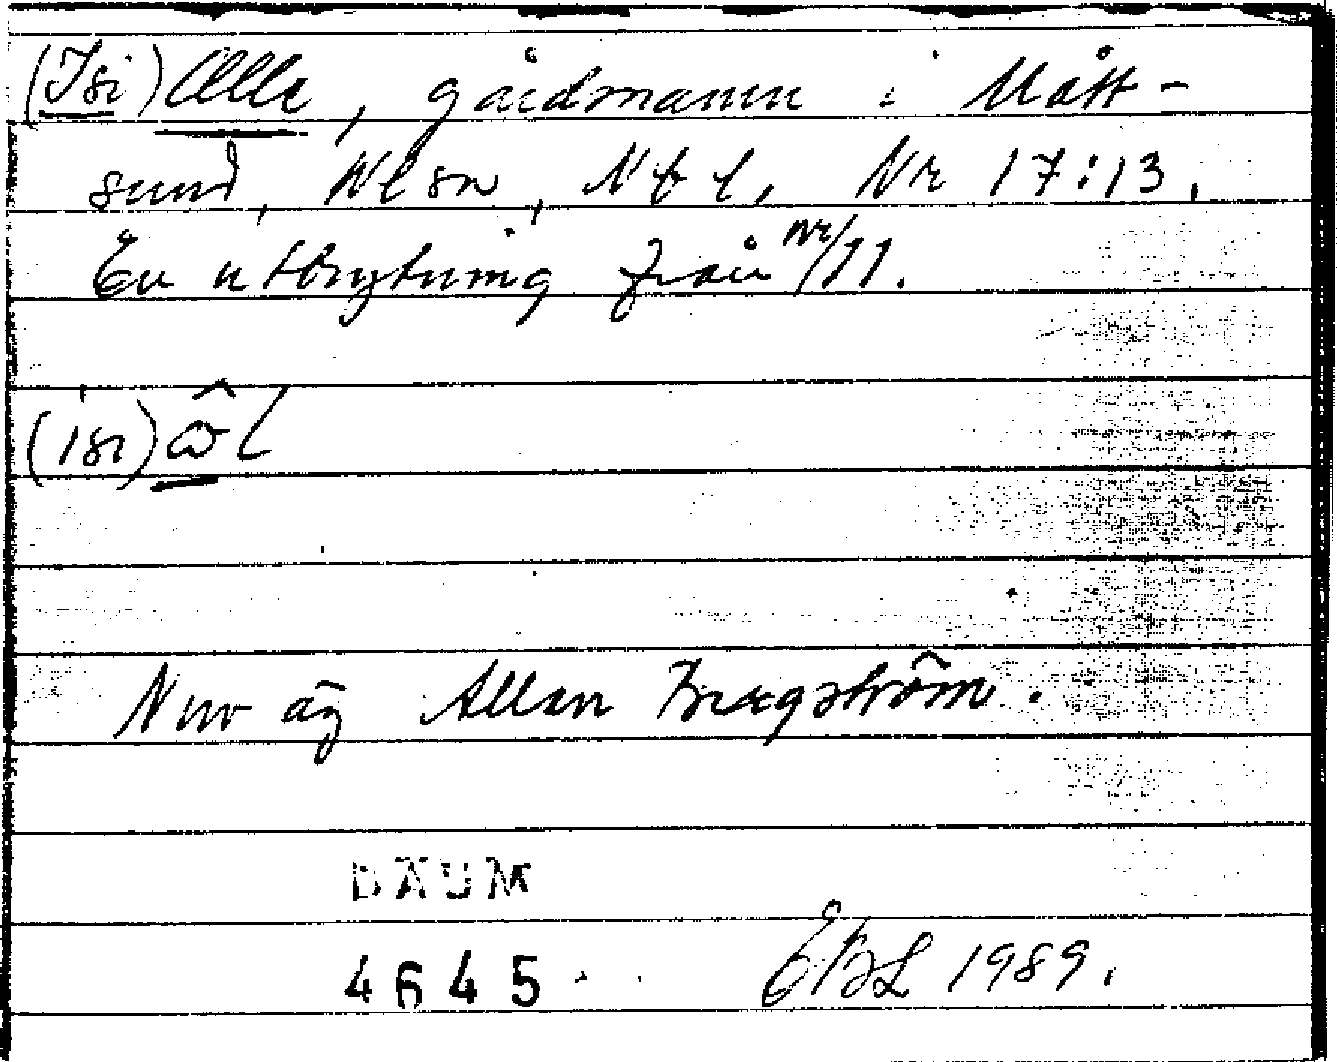 (Isi) Olle, gårdsnamn i Mått-
sund, Nlsn, Nbt, Nr 17:13.
En utbrytning från nr/11.
(isi) ω̂l
Nuv äg Allan Bragström.
DAUM
4645 EBL 1989.